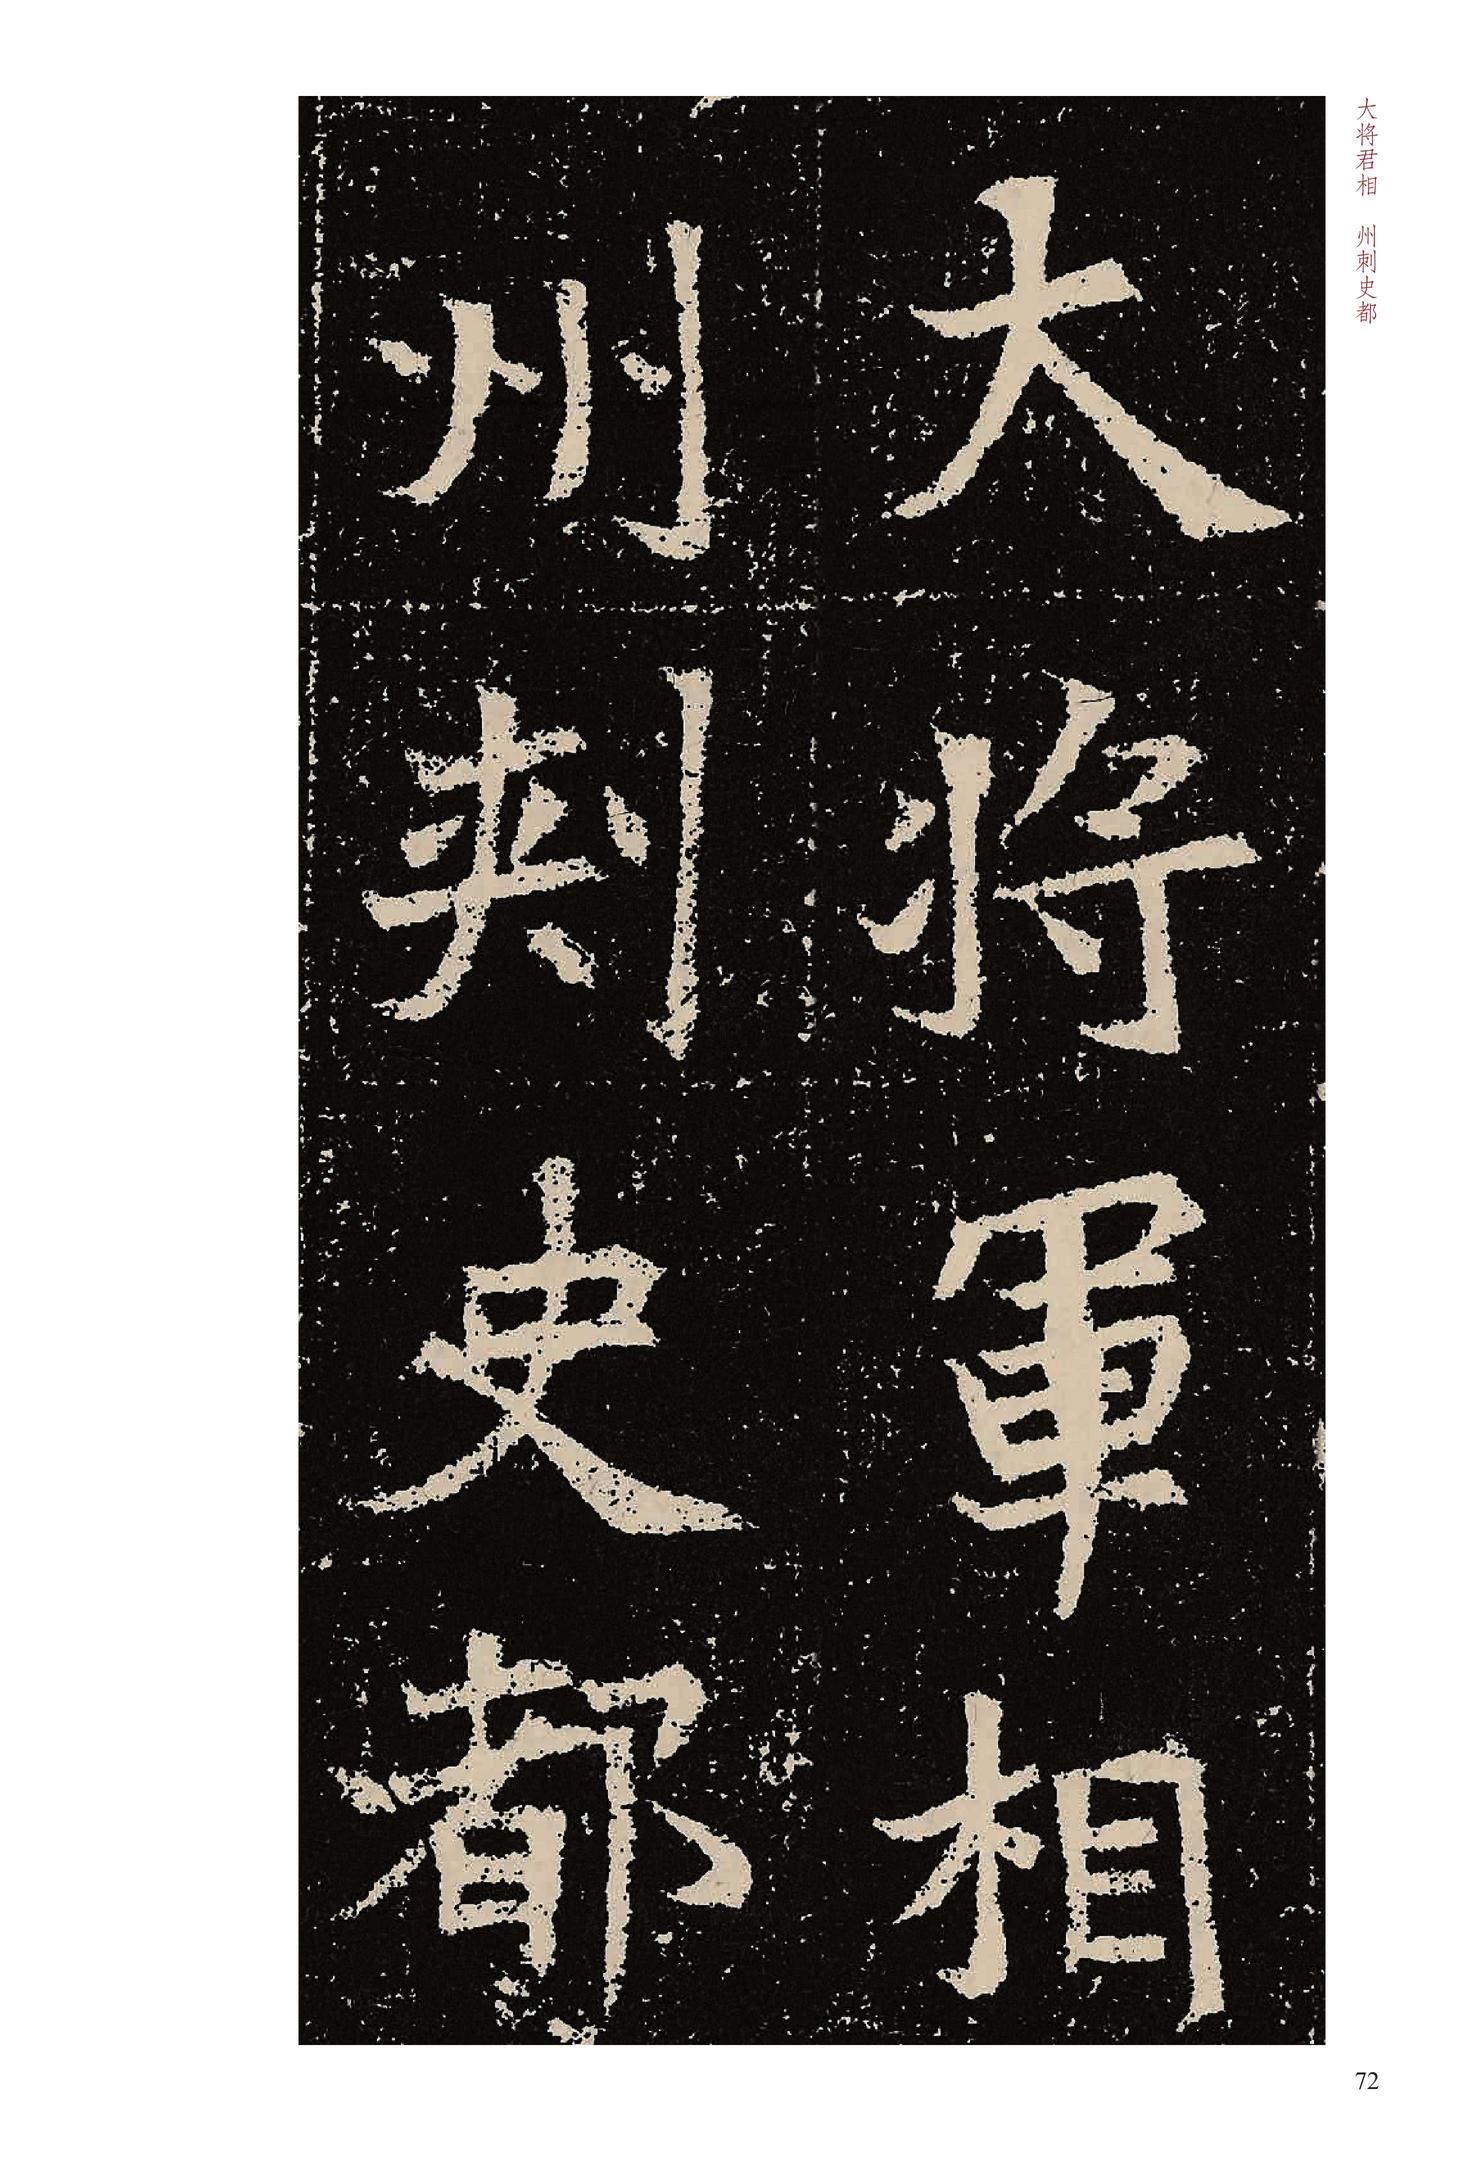 大将君相　州刺史都
大将軍相
州刺史都
72